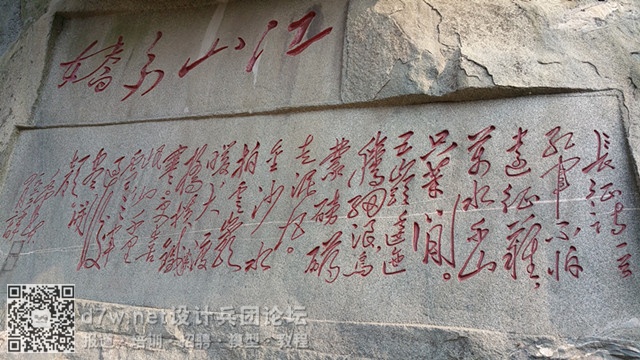 江山多娇
長征诗一首
紅軍不怕
遠征難，
萬水千山
只等闲。
五嶺逶迤
騰细浪烏
蒙磅礴
走泥丸。
金沙水
拍雲崖
暖大渡
橋横鐵索
寒更喜
岷山千里
雪三軍
过後
盡開
顔
d7w.net设计兵团论坛
报道·培训·招聘·模型·教程